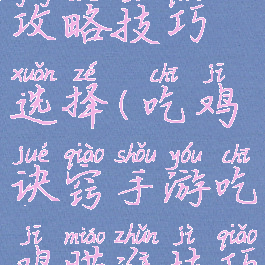 攻略技巧
xuǎn zé chī jī
选择(吃鸡
jué qiào shǒu yóu chī
诀窍手游吃
jī miáo zhǔn jì qiǎo
鸡瞄准技巧